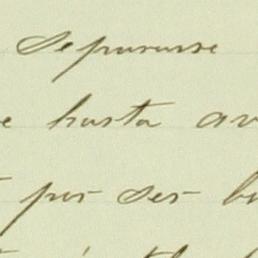 separarse
e hasta av
por ser b